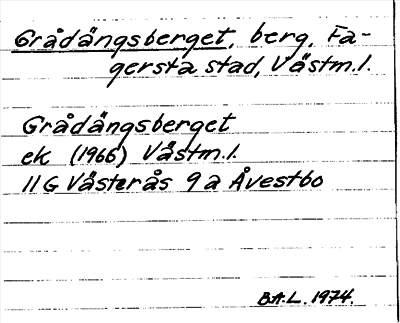 Grådängsberget, berg, Fa-
gersta stad, Västm.l.
Grådängsberget
ek (1966) Västm.l.
11G Västerås 9a Åvestbo
B.A.L. 1974.